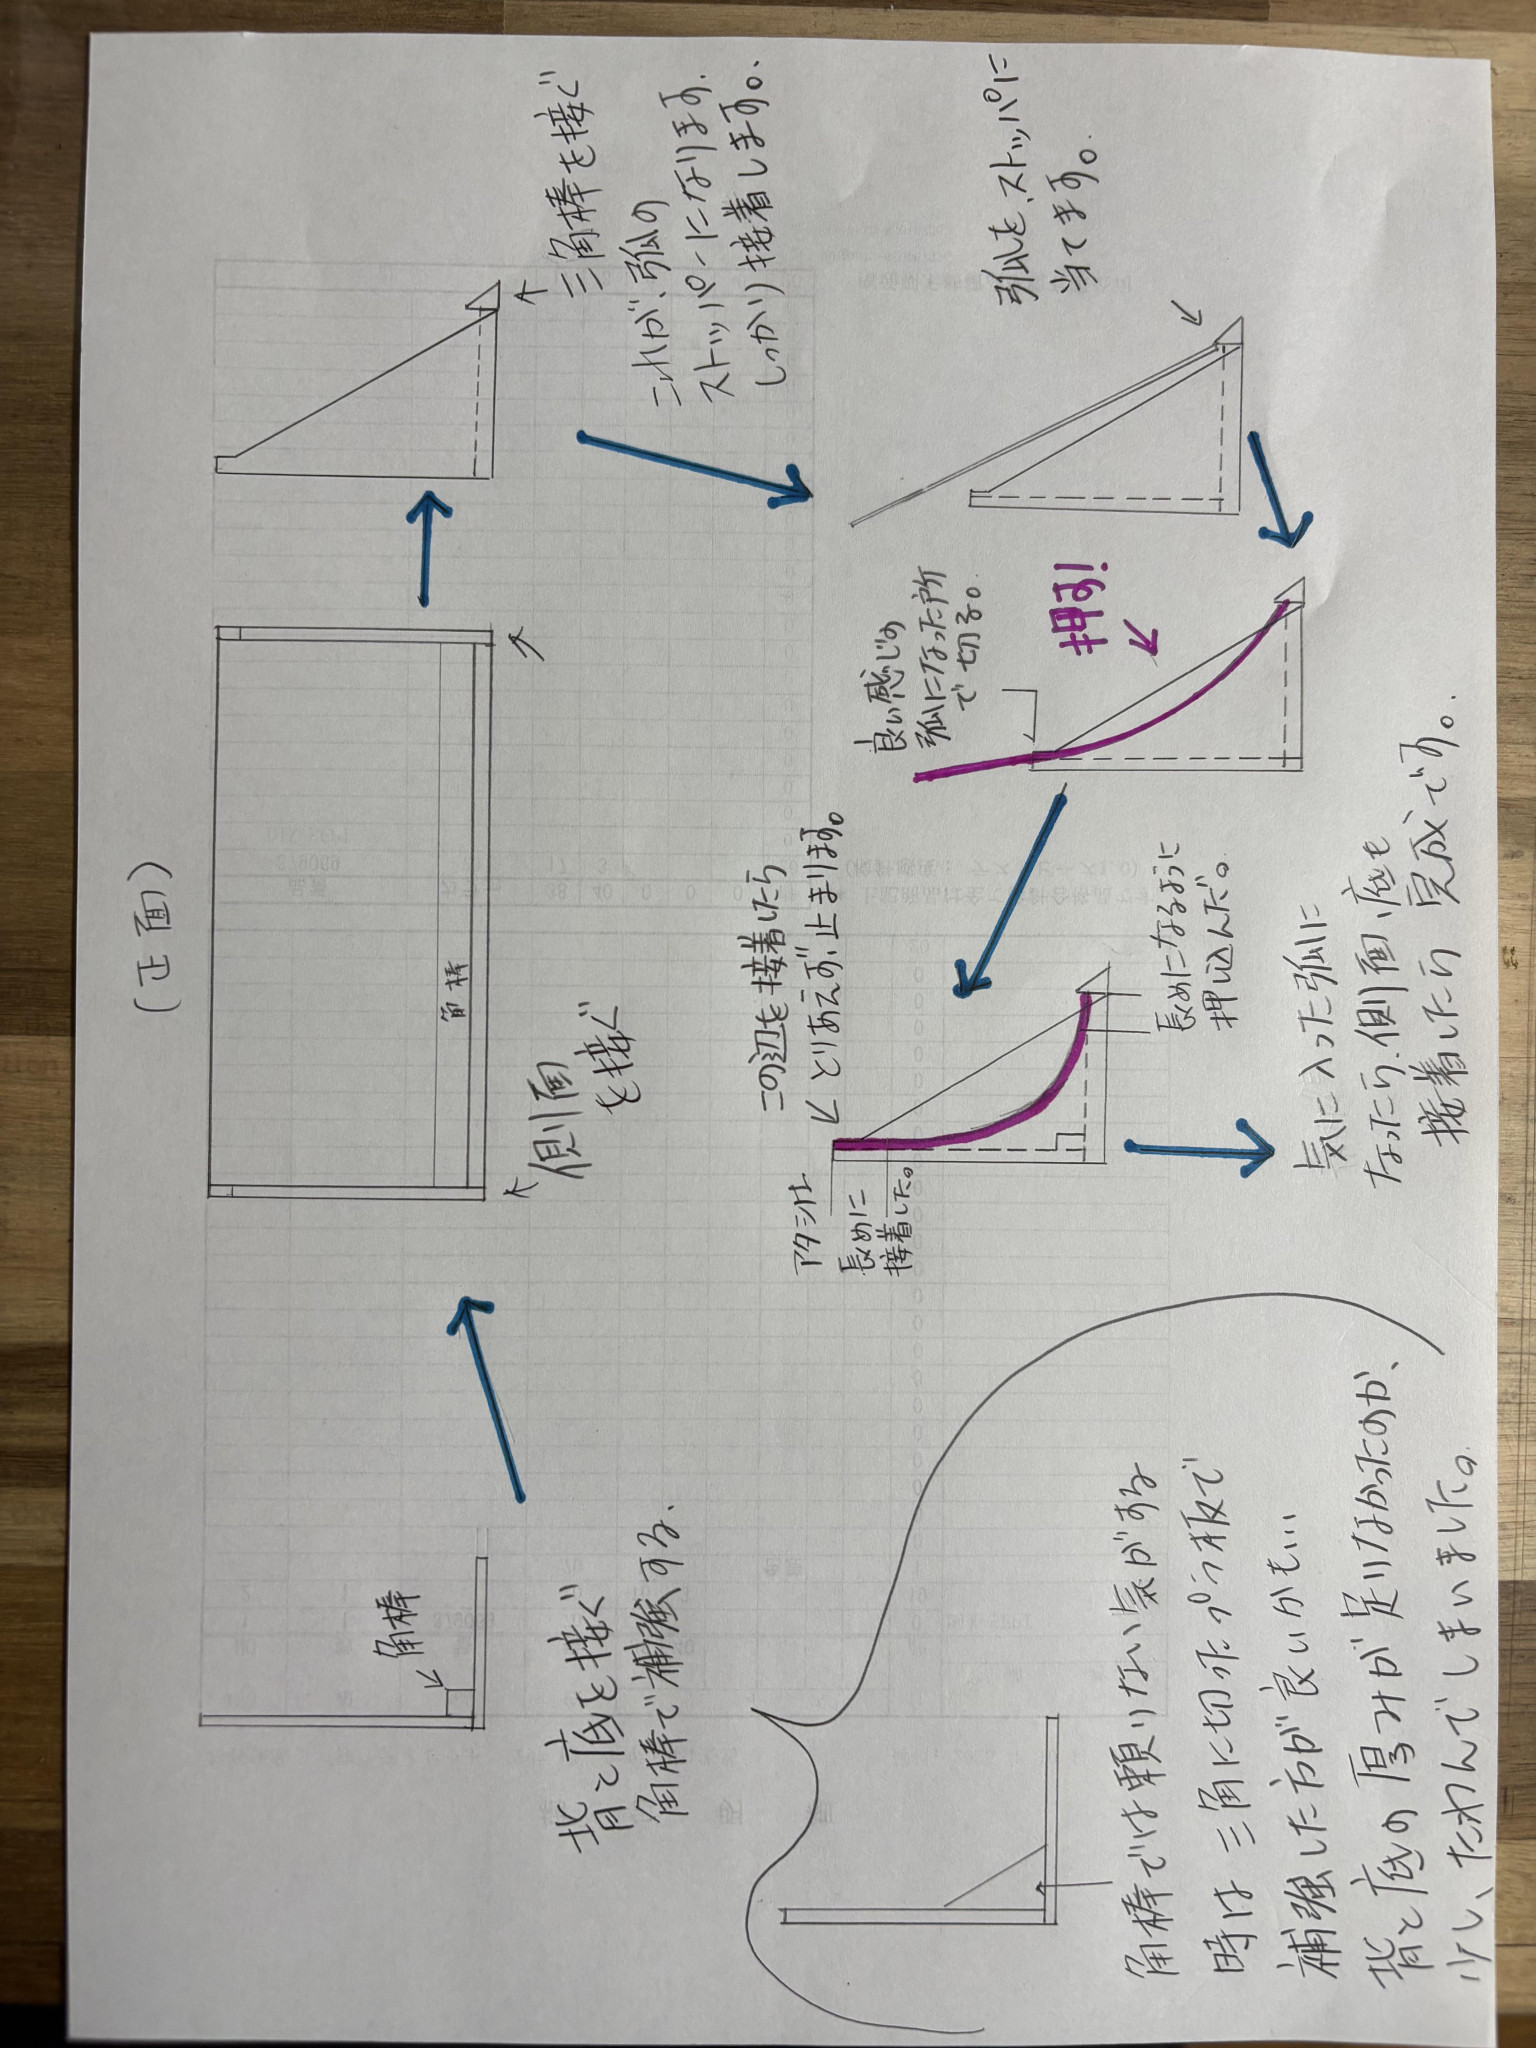 (正面)
角棒
背と底を接ぐ
角棒で補強する.
角棒
側面
を接ぐ
三角棒を接ぐ
これが、弧の
ストッパーになります.
しっかり接着します。
弧を、ストッパに
当てます。
良い感じの
弧になった所
で切る。
押す!
この辺を接着したら
とりあえず、止まります。
アタシは
長めに
接着した。
長めになるように
押し込んだ。
気に入った弧に
なったら、側面、底も
接着したら 完成です。
角棒では頼りない気がする
時は 三角に切った プラ板で
補強した方が良いかも…
背と底の 厚みが 足りなかったのか、
少し、たわんでしまいました。